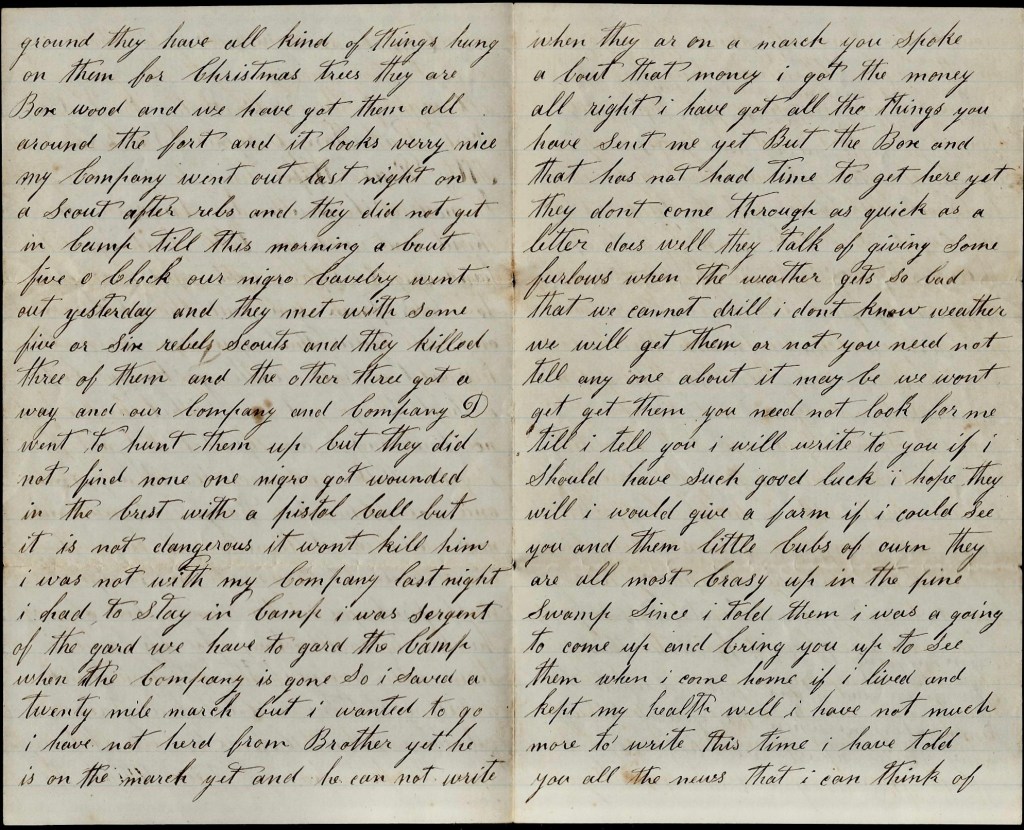 ground they have all kind of things hung
on them for Christmas trees they are
Box wood and we have got them all
around the fort and it looks verry nice
my Company went out last night on
a Scout after rebs and they did not get
in Camp till this morning a bout
five o Clock our nigro Cavelry went
out yesterday and they met with some
five or six rebels scouts and they killed
three of them and the other three got a
way and our Company and Company D
went to hunt them up but they did
not find none one nigro got wounded
in the brest with a pistol ball but
it is not dangerous it wont kill him
i was not with my Company last night
i had to stay in Camp i was sergent
of the gard we have to gard the Camp
when the Company is gone So i Saved a
twenty mile march but i wanted to go
i have not herd from Brother yet he
is on the march yet and he can not write
when they ar on a march you spoke
a bout that money i got the money
all right i have got all the things you
have sent me yet But the Box and
that has not had time to get here yet
they dont come through as quick as a
letter does well they talk of giving some
furlows when the weather gets so bad
that we cannot drill i dont know weather
we will get them or not you need not
tell any one about it may be we wont
get get them you need not look for me
till i tell you i will write to you if i
should have such good luck i hope they
will i would give a farm if i could see
you and them little Cubs of ourn they
are all most Crasy up in the pine
Swamp Since i told them i was a going
to come up and bring you up to see
them when i come home if i lived and
kept my health well i have not much
more to write this time i have told
you all the news that i can think of